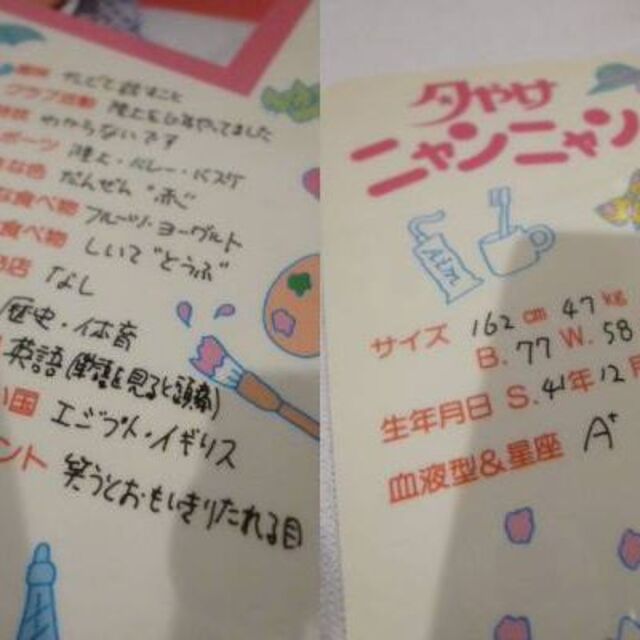 趣味 テレビで話すこと
クラブ活動 陸上を6年やってました
わからないです
ポーツ 陸上・バレー・バスケ
きな色 だんぜん"赤"
な食べ物 フルーツ・ヨーグルト
食べ物 しいて"とうふ"
店 なし
歴史・体育
英語(単語を見ると頭痛)
い国 エジプト・イギリス
ント 笑うとおもいきりたれる目
夕やけ
ニャンニャン
サイズ 162cm 47kg
B.77 W.58
生年月日 S.41年12月
血液型&星座 A+